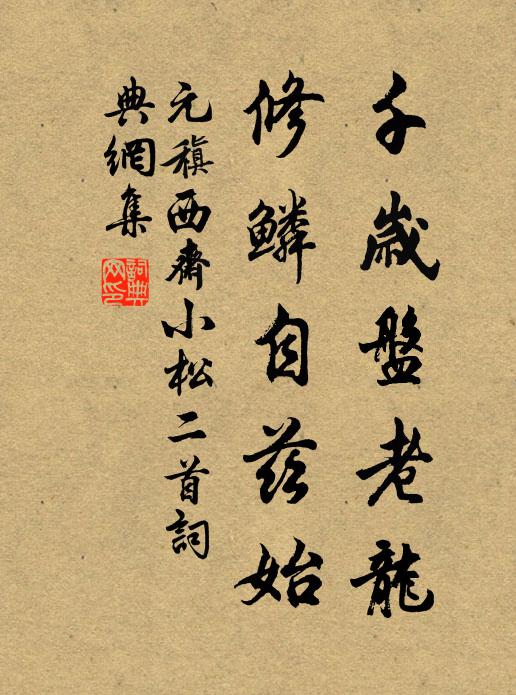 千歲盤老龍
修鱗自茲始
元稹西齋小松二首詞
典網集
詞典
网印